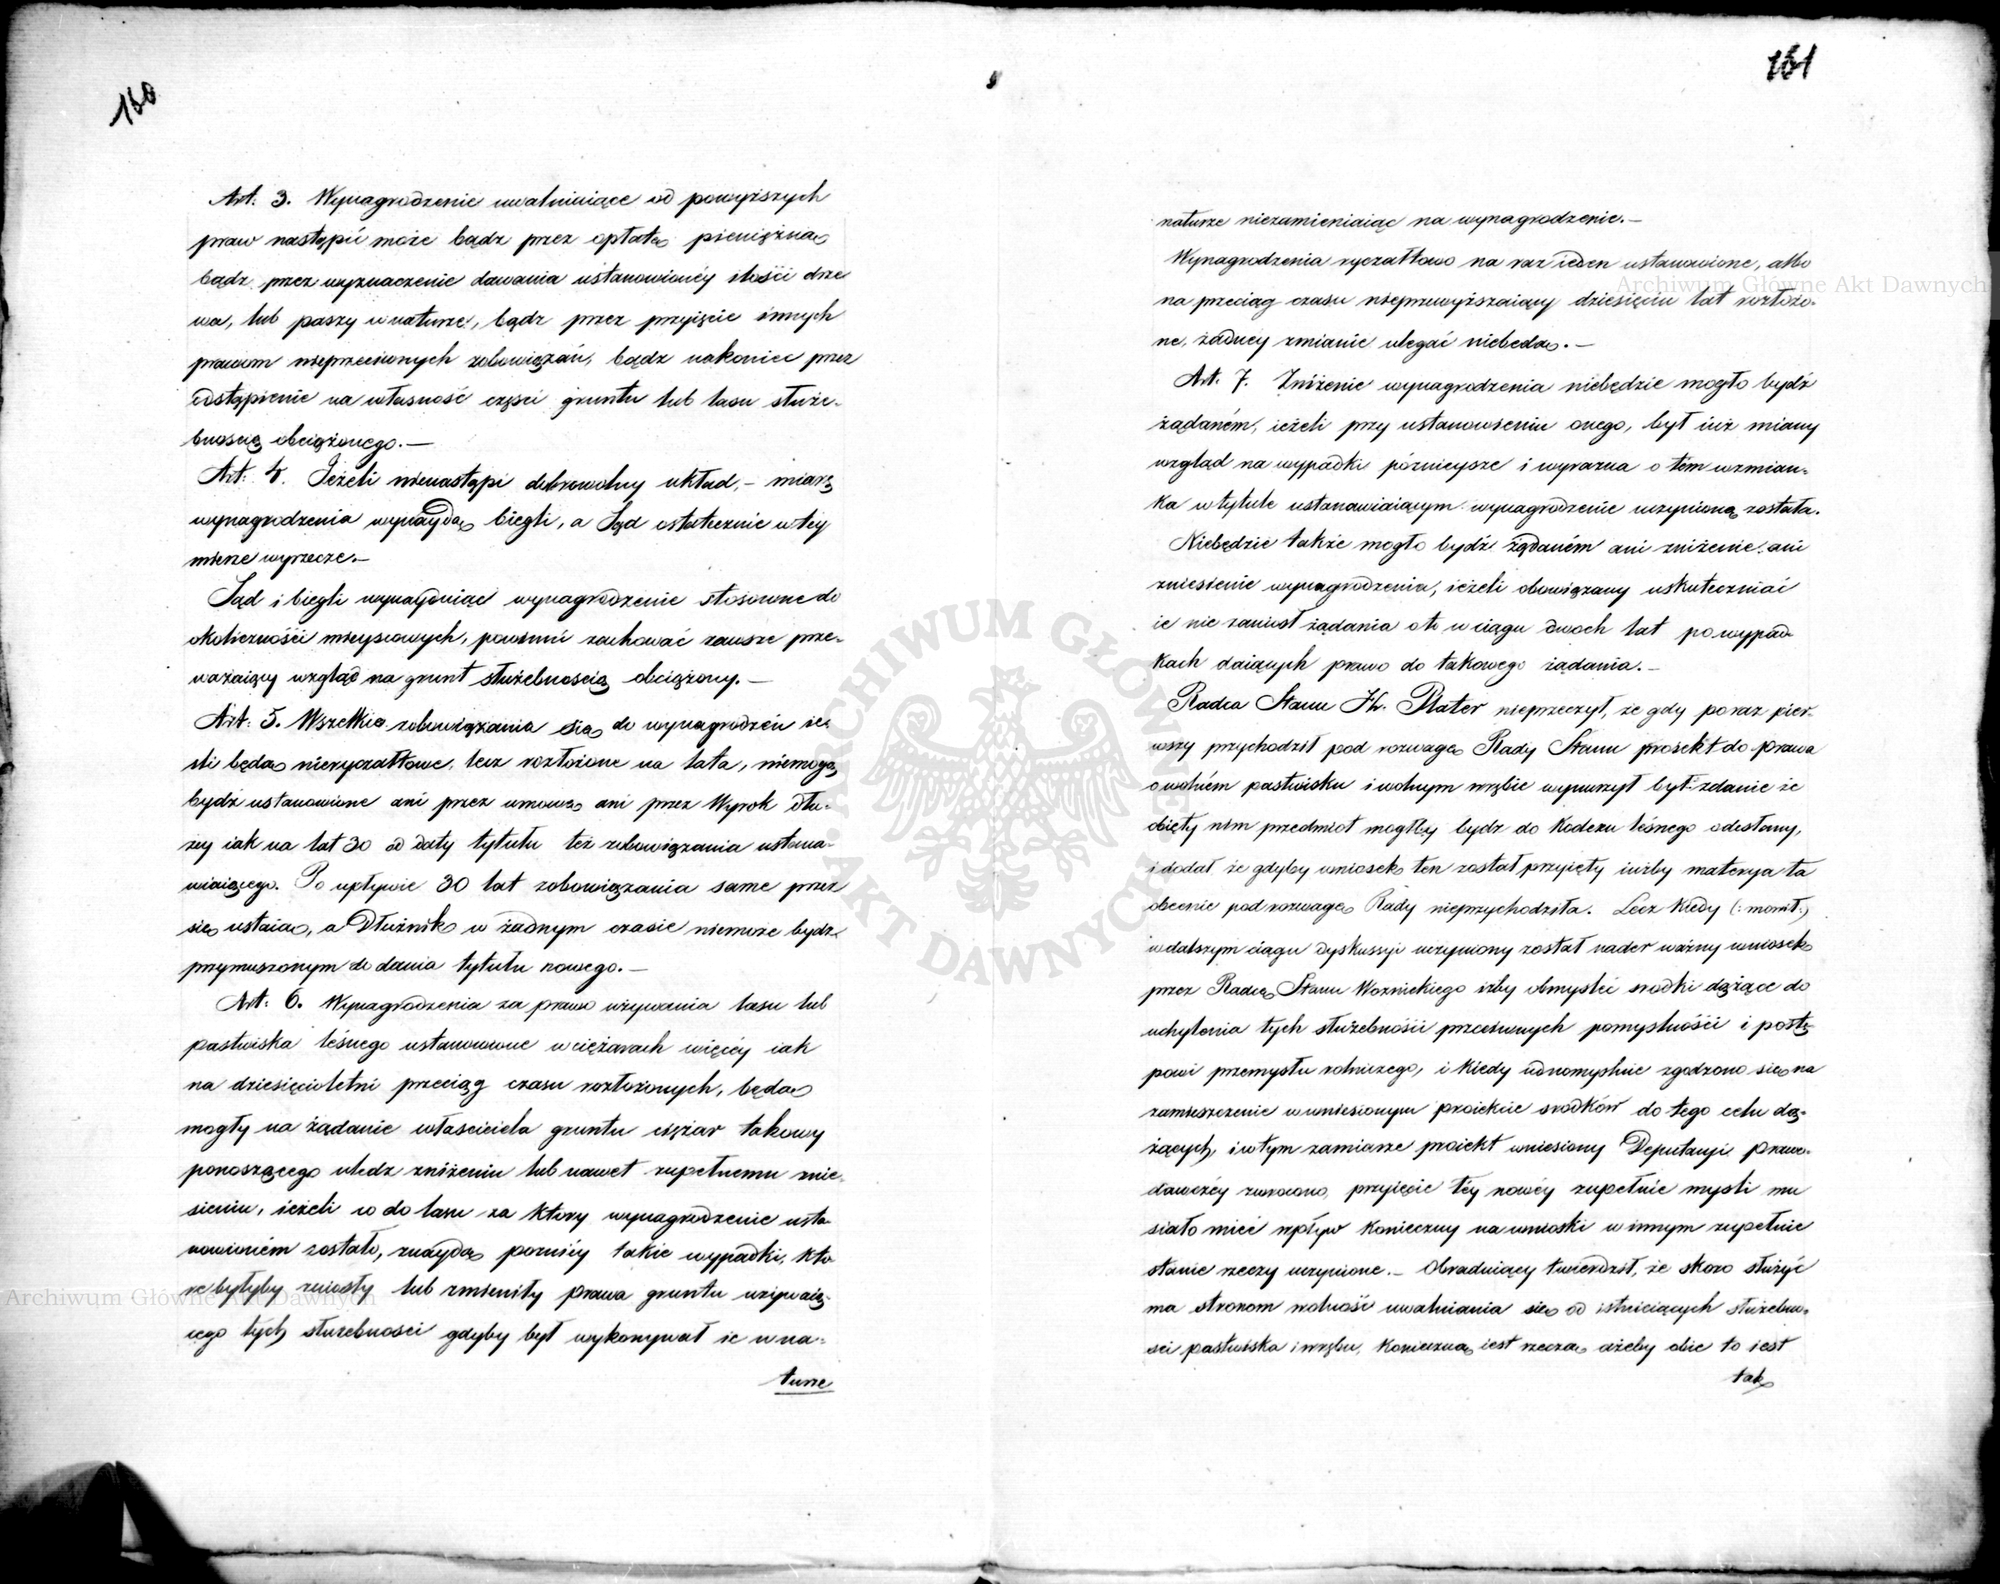 160
Art: 3. Wynagrodzenie uwalniaiące od powyższych
praw nastąpić może bądz przez opłatę pieniężną
bądz przez wyznaczenie dawania ustanowionéy ilości drze
wa, lub paszy w naturze, bądz przez przyięcie innych
prawom nieprzeciwnych zobowiązań, bądz nakoniec przez
odstąpienie na własność części gruntu lub lasu służe-
bnością obciążonego.—
Art: 4. Jeżeli nienastąpi dobrowolny układ,– miarę
wynagrodzenia wynaydą biegli, a Sąd ostatecznie w téy
mierze wyrzecze.—
Sąd i biegli wynayduiąc wynagrodzenie stosowne do
okoliczności mieyscowych, powinni zachować zawsze prze-
ważaiący wzgląd na grunt służebnością obciążony.—
Art: 5. Wszelkie zobowiązania się do wynagrodzeń ie-
śli będą nieryczałtowe, lecz rozłożone na lata, niemogą
bydź ustanowione ani przez umowę ani przez Wyrok dłu-
żey iak na lat 30 od daty tytułu też zobowiązania ustana-
wiaiącego. Po upływie 30 lat zobowiązania same przez
się ustaią, a Dłużnik w żadnym czasie niemoże bydz
przymuszonym do dania tytułu nowego.—
Art: 6. Wynagrodzenia za prawo używania lasu lub
pastwiska leśnego ustanowione w ciężarach więcéy iak
na dziesięcioletni przeciąg czasu rozłożonych, będą
mogły na żądanie właściciela gruntu ciężar takowy
ponoszącego uledz zniżeniu lub nawet zupełnemu znie-
sieniu, ieżeli co do lasu za który wynagrodzenie usta-
nowioném zostało, znaydą pozniéy takie wypadki, któ-
re byłyby zniosły lub zmieniły prawa gruntu używaią-
cego tych służebności gdyby był wykonywał ie w na-
turze
161
naturze niezamieniaiąc na wynagrodzenie.—
Wynagrodzenia ryczałtowo na raz ieden ustanowione, albo
na przeciąg czasu nieprzewyższaiący dziesięciu lat rozłożo-
ne, żadney zmianie ulegać niebędą.—
Art. 7. Zniżenie wynagrodzenia niebędzie mogło bydź
żądaném, ieżeli przy ustanowieniu onego, był iuż miany
wzgląd na wypadki póznieysze i wyrazna o tém wzmian-
ka w tytule ustanawiaiącym wynagrodzenie uczynioną została.
Niebędzie także mogło bydź żądaném ani zniżenie, ani
zniesienie wynagrodzenia, ieżeli obowiązany uskuteczniać
ie nie zaniósł żądania o to w ciągu dwoch lat po wypad-
kach daiących prawo do takowego żądania.—
Radca Stanu Hr. Plater nieprzeczył, że gdy poraz pier-
wszy przychodził pod rozwagę Rady Stanu proiekt do prawa
o wolném pastwisku i wolnym wrębie wynurzył był zdanie że
obięty nim przedmiot mogłby bydz do Kodexu leśnego odesłany,
i dodał, że gdyby wniosek ten został przyięty iużby materya ta
obecnie pod rozwagę Rady nieprzychodziła. Lecz kiedy (: mówił:)
w dalszym ciągu dyskussyi uczyniony został nader ważny wniosek
przez Radcę Stanu Woznickiego iżby obmyslić srodki dążące do
uchylenia tych służebności przeciwnych pomyslności i postę-
powi przemysłu rolniczego, i kiedy iednomyslnie zgodzono się na
zamieszczenie w wniesionym proiekcie srodków do tego celu dą-
żących, i w tym zamiarze proiekt wniesiony Deputacyi prawo-
dawczéy zwrócono, przyięcie téy nowéy zupełnie mysli mu
siało mieć wpływ konieczny na wnioski w innym zupełnie
stanie rzeczy uczynione.— Obraduiący twierdził, że skoro służyć
ma stronom wolność uwalniania się od istnieiących służebno-
ści pastwiska i wrębu, konieczną iest rzeczą ażeby obie to iest
tak
Archiwum Główne Akt Dawnych
Archiwum Główne Akt Dawnych
ARCHIWUM GŁÓWNE AKT DAWNYCH